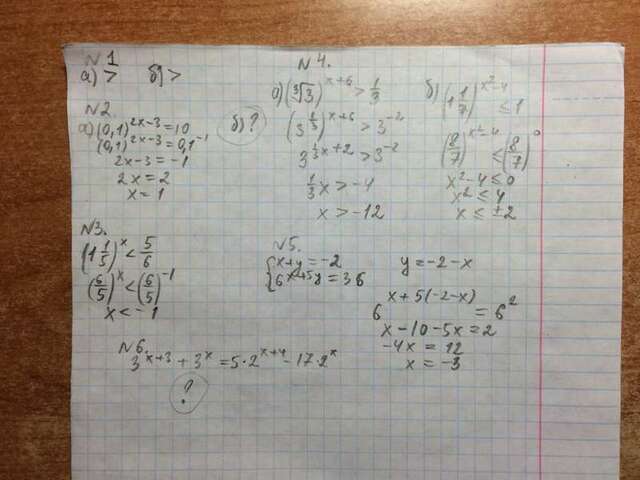 N1
а) > б) >
N2
а) (0,1)^{2x-3} = 10
(0,1)^{2x-3} = 0,1^{-1}
2x-3 = -1
2x = 2
x = 1
б) ?
N3.
(1 1/5)^x < 5/6
(6/5)^x < (6/5)^{-1}
x < -1
N4.
а) (∛3)^{x+6} > 1/3
(3^{1/3})^{x+6} > 3^{-2}
3^{1/3 x+2} > 3^{-2}
1/3 x > -4
x > -12
б) (1 1/7)^{x²-4} ≤ 1
(8/7)^{x²-4} ≤ (8/7)^0
x²-4 ≤ 0
x² ≤ 4
x ≤ ±2
N5.
{x+y = -2
6^{x+5y} = 36
y = -2-x
6^{x+5(-2-x)} = 6²
x-10-5x = 2
-4x = 12
x = -3
N6
3^{x+3} + 3^x = 5·2^{x+4} - 17·2^x
?